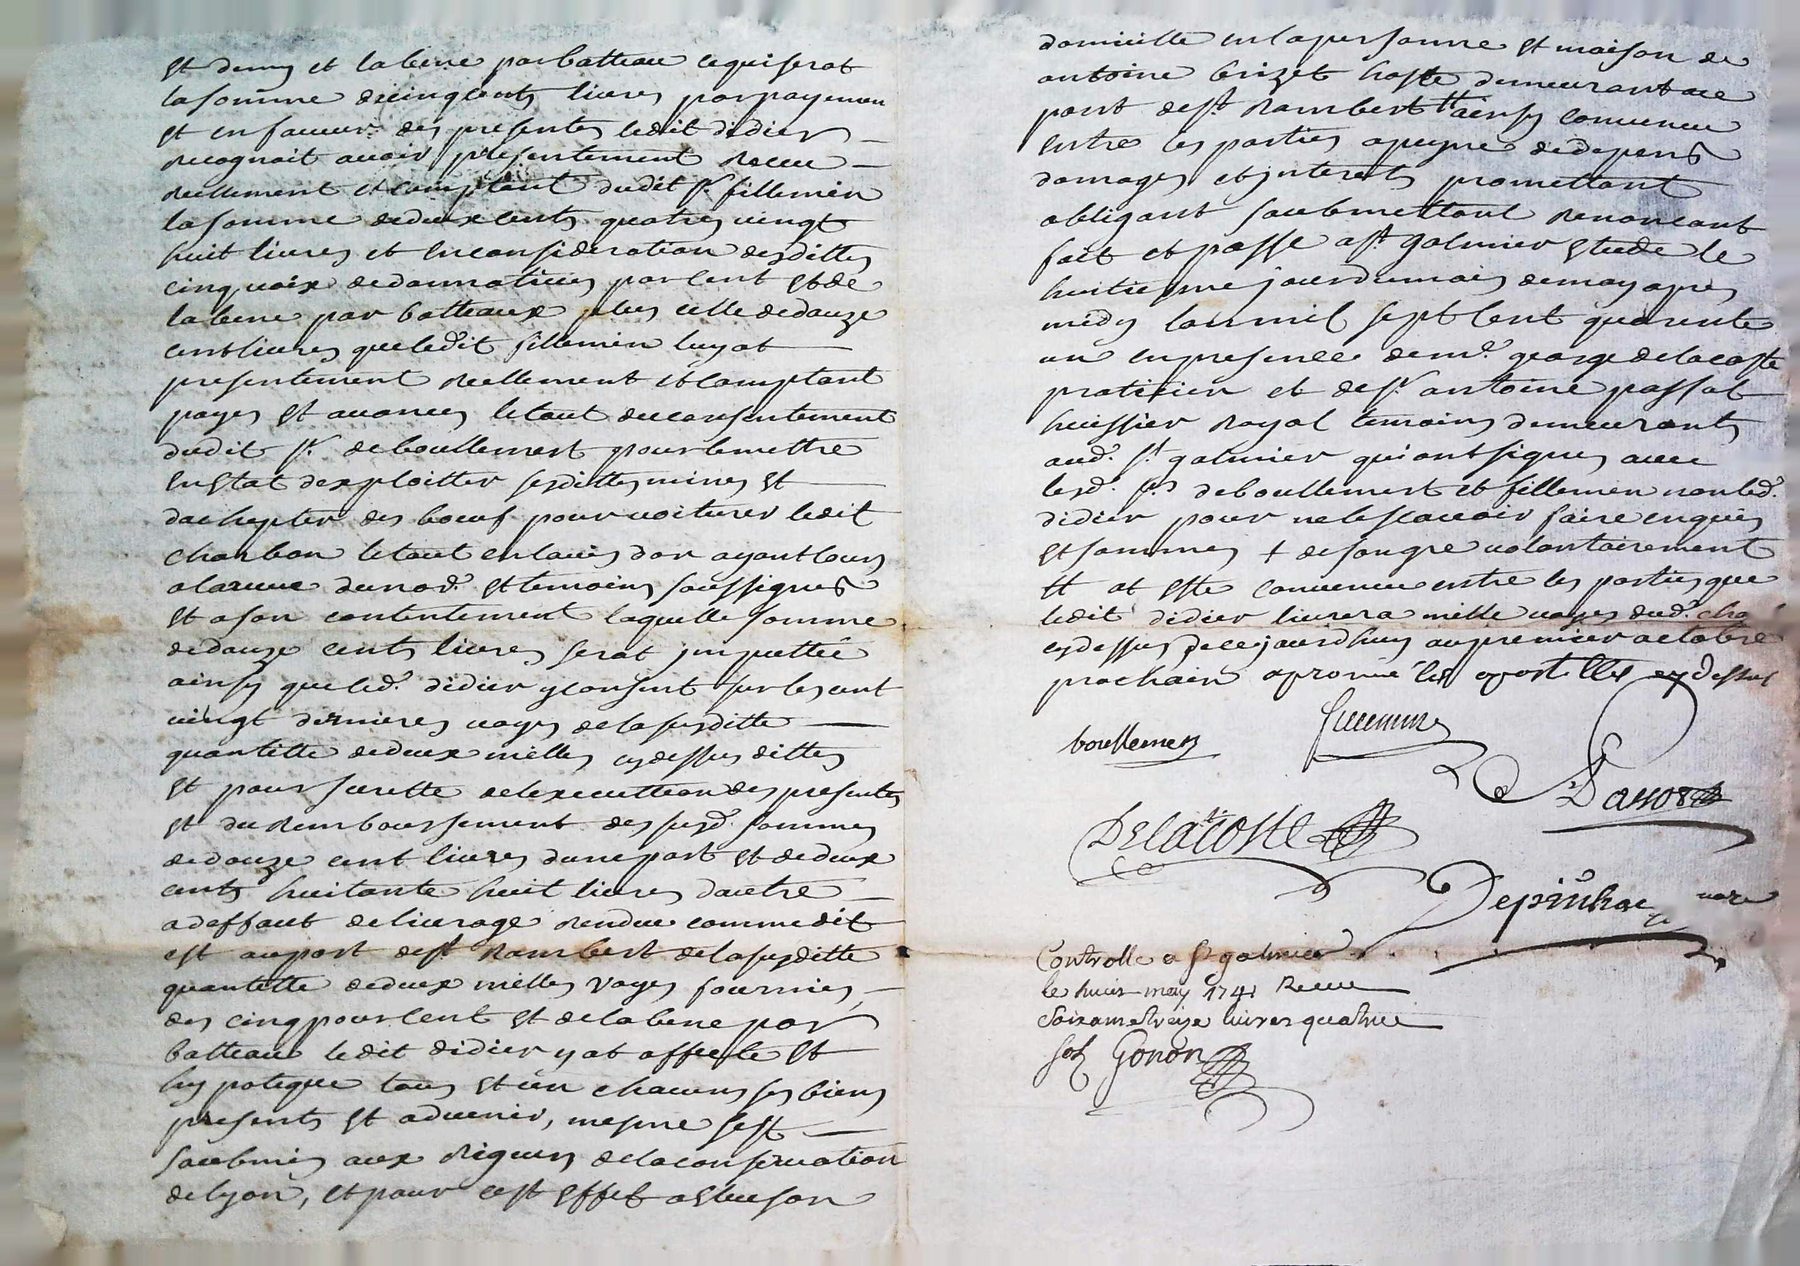 et demy et la bene par batteau ce qui serat
la somme de cinq cents livres par payement
et en faveur des presentes ledit didier
recognoit avoir presentement receu
reellement et comptant dudit sr. fillemin
la somme de deux cents quatre vingt
huit livres et en consideration desdittes
cinq voix de donnatives par cent et de
la bene par batteaux plus celle de douze
cent livres que ledit fillemin luy at
presentement reellement et comptant
payes et avances le tout du consentement
dudit sr. de boullement pour le mettre
en etat dexploitter sesdittes mines et
dachepter des boeuf pour voiturer ledit
charbon le tout en louis dor ayant cours
a la veue du nore. et temoins soussignes
et a son contentement laquelle somme
de douze cents livres serat imputtée
ainsy que led. didier y consent sur les cent
vingt dernieres voyes de la susditte
quantitte de deux milles cy dessus dittes
et pour seurette de lexecuttion des presentes
et du remboursement des susd. sommes
de douze cent livres dune part et de deux
cents huitante huit livres dautre
a deffaut de livrage rendue comme dit
est au port de st rambert de la susditte
quantitte de deux milles voyes fournies
des cinq pour cent et de la bene par
batteau ledit didier y at affecte et
hypoteque tous et un chacuns ses biens
presents et advenir, mesme sest
soubmis aux rigueurs de la conservation
de lyon, et pour cest effet a eleu son
domicille en la personne et maison de
antoine crizet hoste demeurant au
port de st. rambert tt ainsy convenu
entre les parties a peyne de depens
domages et interets promettant
obligant soubmettant renoncant
fait et passe a st galmier etude le
huitiesme jour du mois de may apres
midy lan mil sept cent quarente
un en presence de me. george delacoste
praticien et de sr. antoine passot
huissier royal temoins demeurants
aud. st galmier qui ont signes avec
lesd. srs deboullement et fillemin non led.
didier pour ne le scavoir faire enquis
et sommes + de son gre volontairement
tt at este convenu entre les parties que
ledit didier livrera mille voyes dud. cha
cy dessus de ce jourdhuy au premier octobre
prochain aprouvé les apostilles cy dessus
boullement
fillemin
Passot
Delacoste
Depinhac nore
Controllé a st galmier
le huit may 1741 Receu
Soixante treize livres quatre
sols Gonon